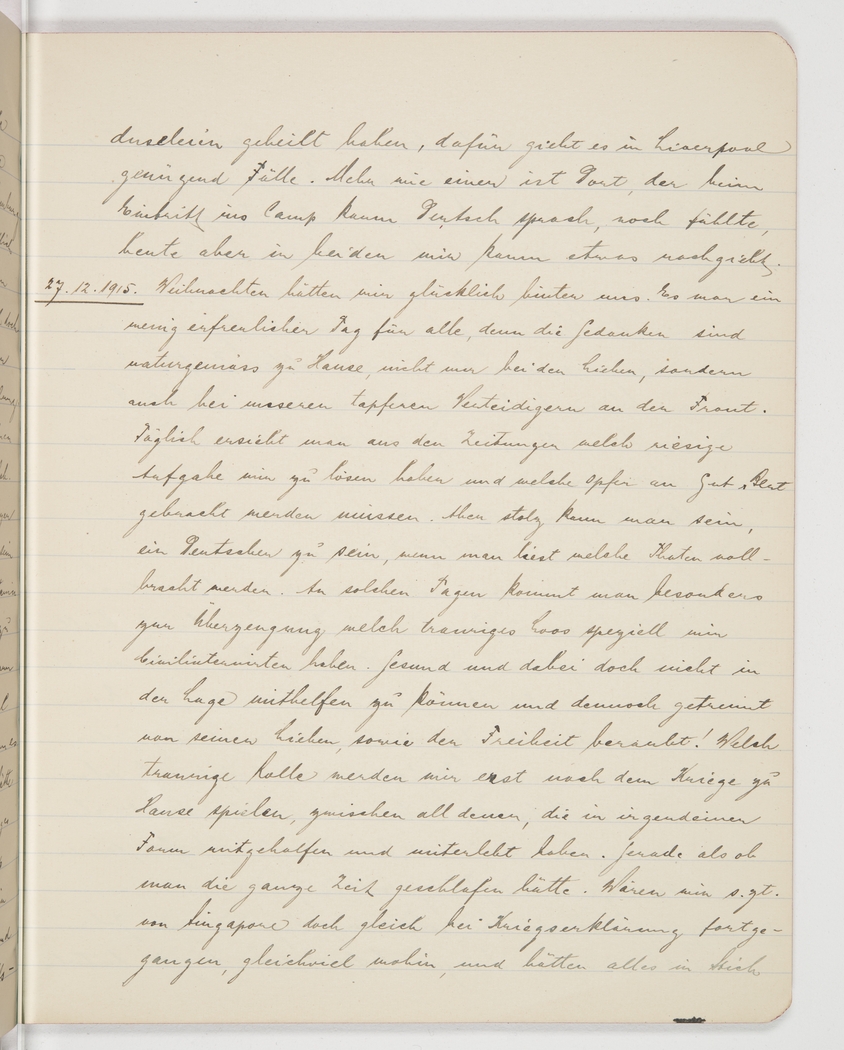 duseleien geheilt haben, dafür giebt es in Liverpool
genügend Fälle. Mehr wie einer ist dort, der beim
Eintritt ins Camp kaum Deutsch sprach, noch fühlte,
heute aber in beiden mir kaum etwas nachgiebt.
27.12.1915. Weihnachten hätten wir glücklich hinter uns. Es war ein
wenig erfreulicher Tag für alle, denn die Gedanken sind
naturgemäss zu Hause, nicht nur bei den Lieben, sondern
auch bei unseren tapferen Verteidigern an der Front.
Täglich ersieht man aus den Zeitungen welch riesige
Aufgabe wir zu lösen haben und welche Opfer an Gut & Blut
gebracht werden müssen. Aber stolz kann man sein,
ein Deutscher zu sein, wenn man liest welche Thaten voll-
bracht werden. An solchen Tagen kommt man besonders
zur Überzeugung welch trauriges Loos speziell wir
Civilinternirten haben. Gesund und dabei doch nicht in
der Lage mithelfen zu können und dennoch getrennt
von seinen Lieben, sowie der Freiheit beraubt! Welch
traurige Rolle werden wir erst nach dem Kriege zu
Hause spielen, zwischen all denen, die in irgendeiner
Form mitgeholfen und miterlebt haben. Gerade als ob
man die ganze Zeit geschlafen hätte. Wären wir s. Zt.
von Singapore doch gleich bei Kriegserklärung fortge-
gangen, gleichviel wohin, und hätten alles in Stich